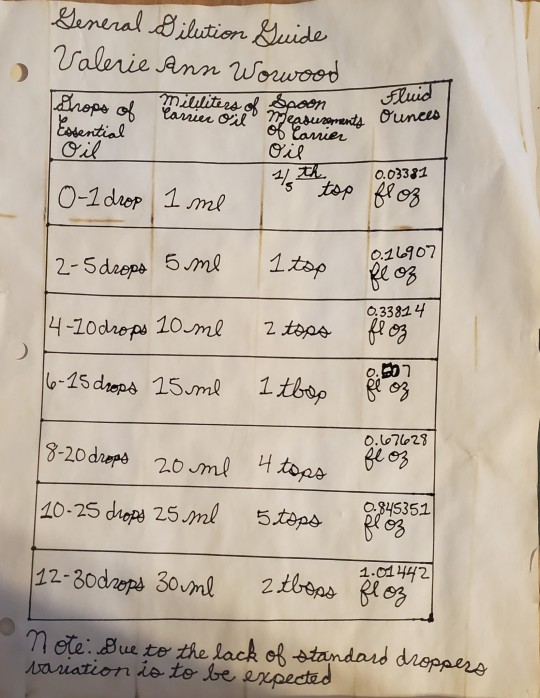 General Dilution Guide
Valerie Ann Worwood
Drops of Essential Oil | Mililiters of Carrier Oil | Spoon Measurements of Carrier Oil | Fluid Ounces
0-1 drop | 1 ml | 1/5 th tsp | 0.03381 fl oz
2-5 drops | 5 ml | 1 tsp | 0.16907 fl oz
4-10 drops | 10 ml | 2 tsps | 0.33814 fl oz
6-15 drops | 15 ml | 1 tbsp | 0.507 fl oz
8-20 drops | 20 ml | 4 tsps | 0.67628 fl oz
10-25 drops | 25 ml | 5 tsps | 0.845351 fl oz
12-30 drops | 30 ml | 2 tbsps | 1.01442 fl oz
Note: Due to the lack of standard droppers
variation is to be expected